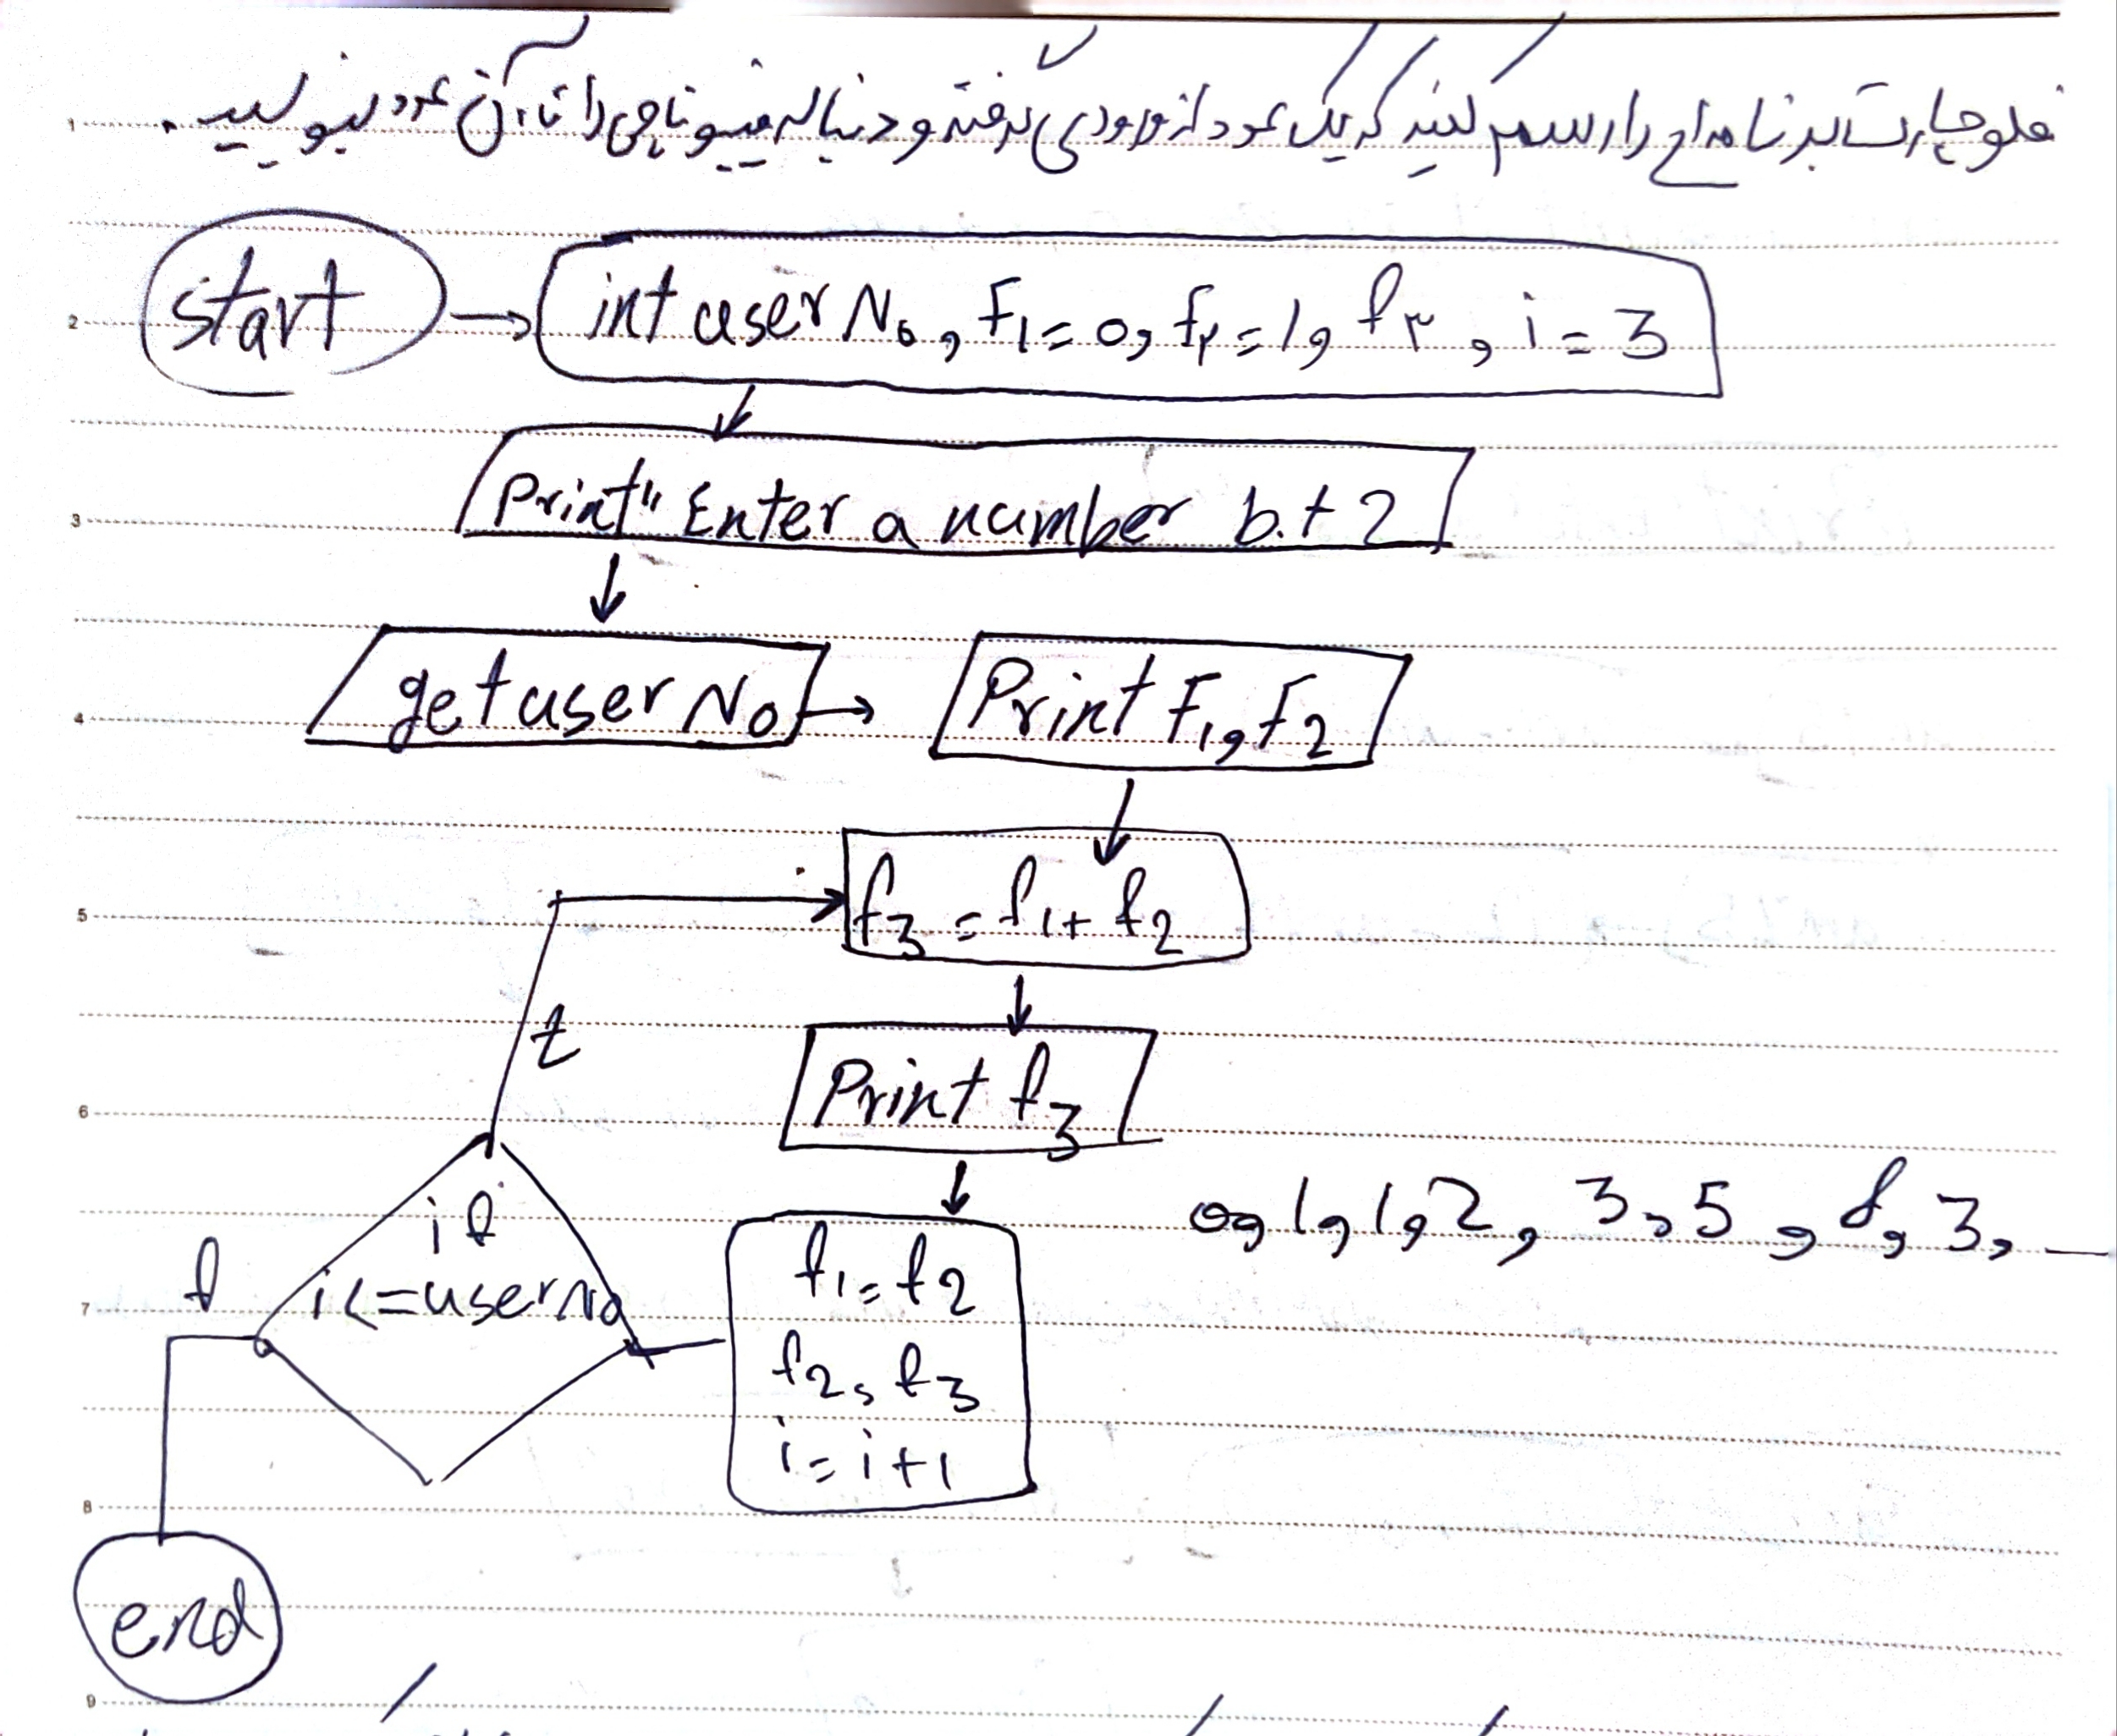 فلوچارت برنامه ای را رسم کنید که یک عدد از ورودی گرفته و دنباله فیبوناچی را تا آن عدد بنویسید.
start
int user No, F1=0, f۲=1, f۳, i=3
Print" Enter a number b.t 2
get user No
Print F1, f2
f3=f1+f2
t
Print f3
0, 1, 1, 2, 3, 5, 8, 3, _
if
i<=userNo
f
f1=f2
f2=f3
i=i+1
end
1
2
3
4
5
6
7
8
9